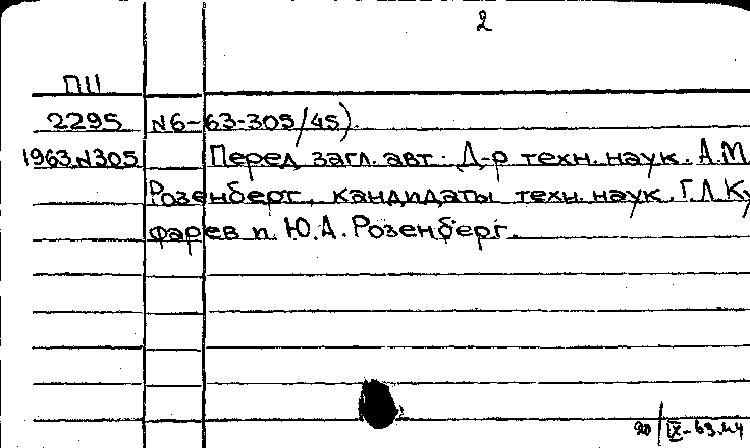 2
ПII
2295 N6-63-305/45).
1963N305 Перед загл. авт: Д-р техн. наук. А.М
Розенберг, кандидаты техн. наук. Г.Л. Ку
фарев п. Ю.А. Розенберг.
20/IX-63